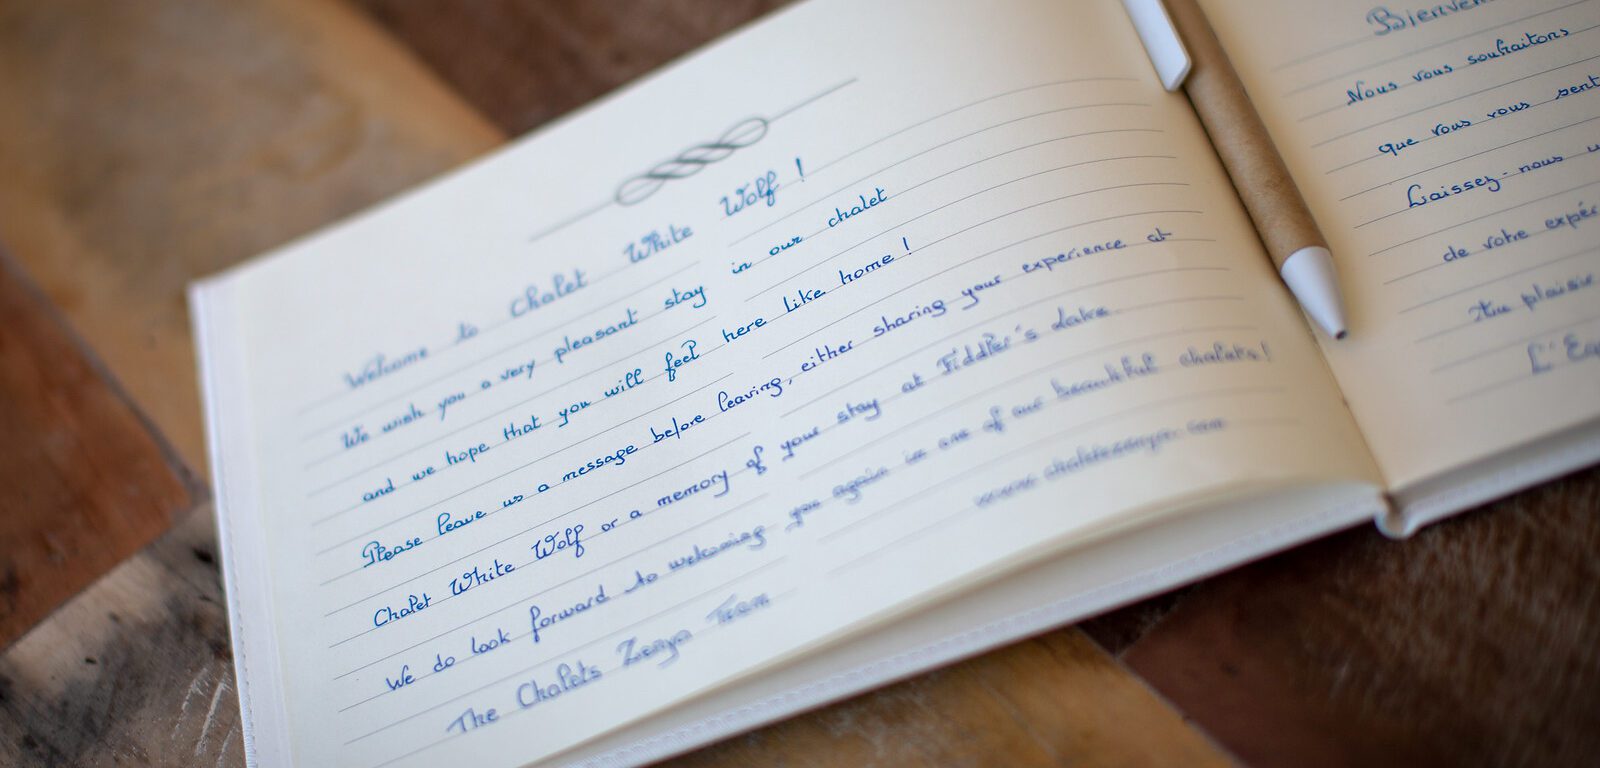 Welcome to Chalet White Wolf !
We wish you a very pleasant stay in our chalet
and we hope that you will feel here like home !
Please leave us a message before leaving, either sharing your experience at
Chalet White Wolf or a memory of your stay at Fiddler's Lake.
We do look forward to welcoming you again in one of our beautiful chalets !
The Chalets Zenya Team
Nous vous souhaitons
que vous vous
Laissez-nous
de votre
Au plaisir